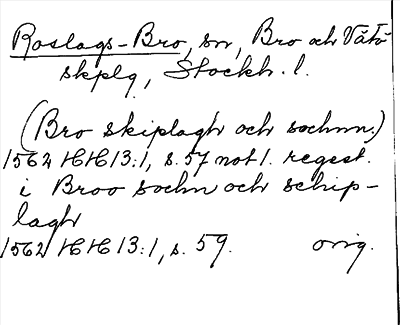 Roslags-Bro, sn, Bro och Vätö
skplg, Stockh. l.
(Bro skiplagh och sochnn.)
1562 HH 13:1, s. 57 not 1. regest.
i Broo sochn och schip-
lagh
1562 HH 13:1, s. 59. orig.